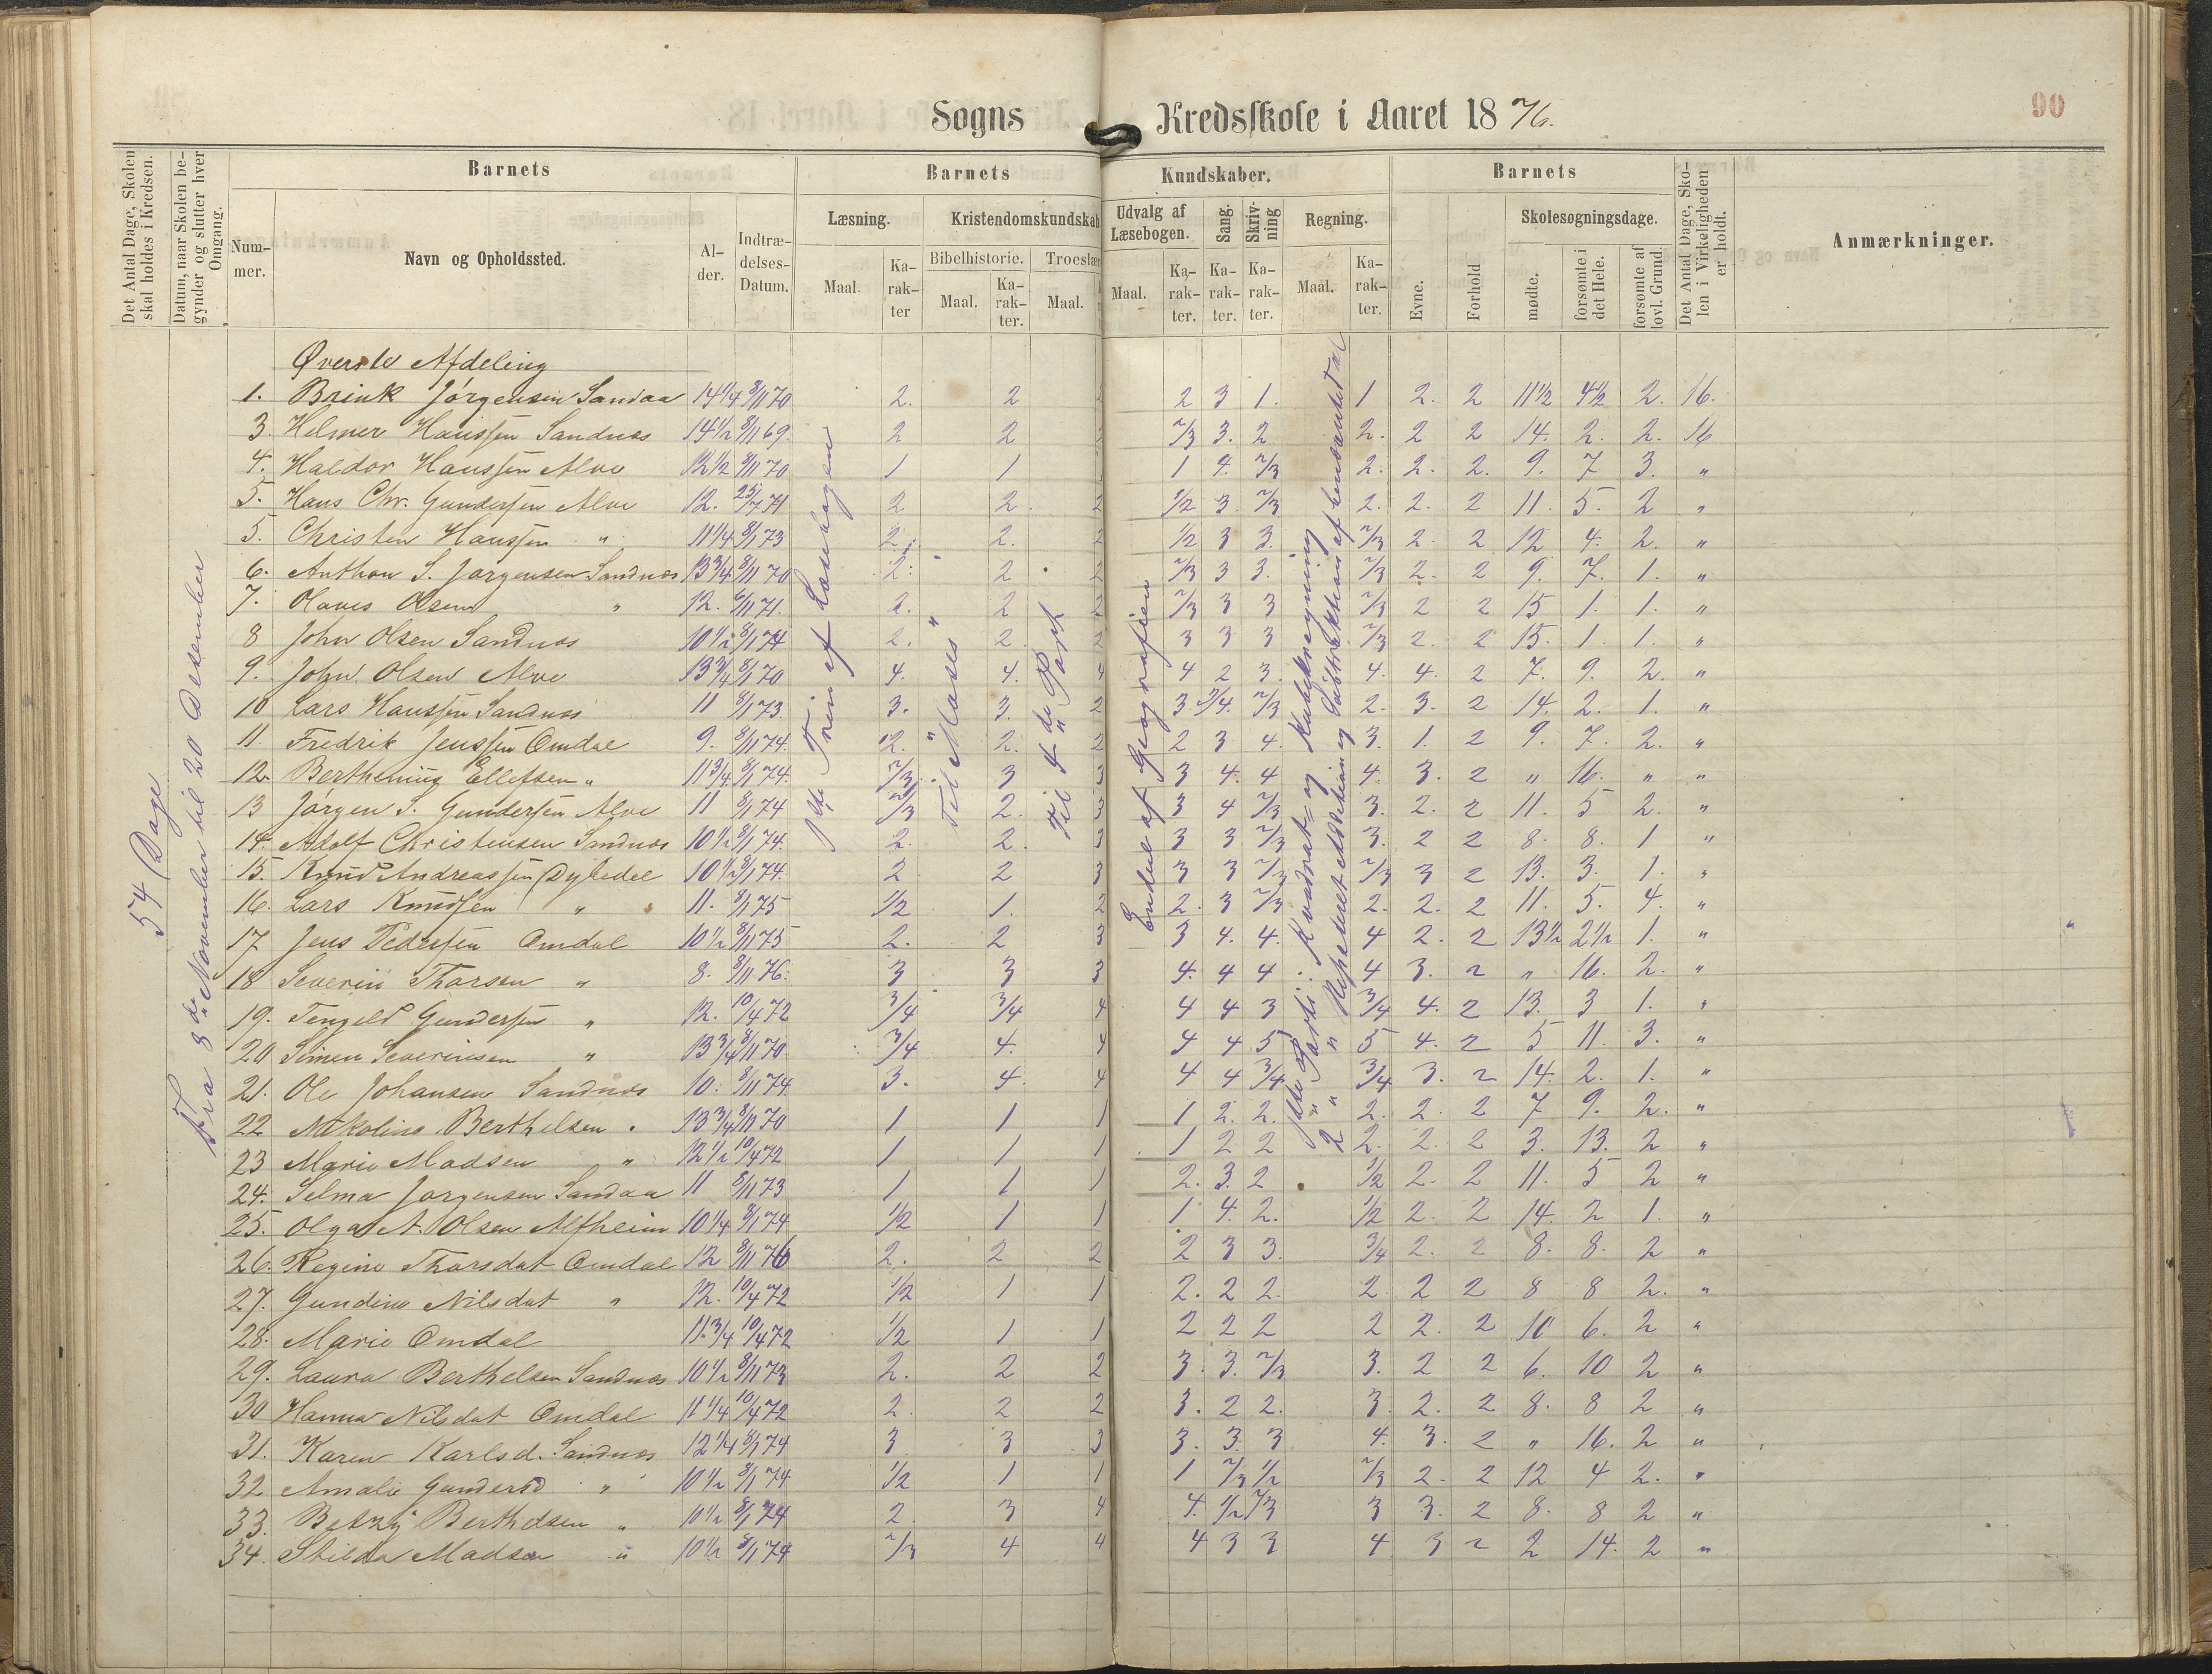 Sogns Kredsskole i Aaret 1876.
90
Det Antal Dage, Skolen skal holdes i Kredsen.
Datum, naar Skolen begynder og slutter hver Omgang.
Barnets
Barnets Kundskaber.
Barnets
Det Antal Dage, Skolen i Virkeligheden er holdt.
Anmærkninger.
Nummer.
Navn og Opholdssted.
Alder.
Indtrædelses-Datum.
Læsning.
Kristendomskundskab
Udvalg af Læsebogen.
Sang.
Skrivning
Regning.
Evne.
Forhold
Skolesøgningsdage.
Bibelhistorie.
Troeslær
Maal
Karakter
Maal.
Karakter.
Maal.
Maal.
Karakter.
Karakter.
Karakter.
Maal.
Karakter.
mødte.
forsømte i det Hele.
forsømte af lovl. Grund.
54 Dage
Fra 8de November til 20 Desember
Trin af Læsebogen
Til Moses
Til 4de Part
Endel af Geografien
Parti: Kvadrat= og Kubikregning
2 " " Repeteret Addition og Subtraktion af benævnte Tal
Øverste Afdeling
1. Brink Jørgensen Sandaa 14 1/4 8/11 70 2. 2 2 2 3 1. 1 2. 2 11 1/2 4 1/2 2. 16.
3. Helmer Hanssen Sandnæs 14 1/2 8/11 69. 2 2 2 2/3 3. 2 2. 2 2 14. 2. 2. 16
4. Haldor Hanssen Alve 12 1/2 8/11 70 1 1 1 4. 2/3 2. 2. 2. 9. 7 3. "
5. Hans Chr. Gundersen Alve 12. 25/7 71 2 2. 2 1/2 3 2/3 2. 2. 2 11. 5. 2 "
5. Christen Hanssen " 11 1/4 8/1 73 2. 2. 2 1/2 3 3. 2/3 2. 2 12 4. 2. "
6. Anthon S. Jørgensen Sandnæs 13 3/4 8/11 70 2. 2 2 2/3 3 3. 2/3 2. 2 9. 7. 1. "
7. Olaves Olsen " 12. 6/11 71. 2. 2 2 2/3 3 3 2/3 2 2 15 1. 1. "
8 John Olsen Sandnæs 10 1/2 8/1 74 2. 2. 2 3 3 3 2/3 2. 2 15. 1. 1. "
9. John Olsen Alve 13 3/4 8/1 70 4. 4. 4 4 2 3. 4. 4. 2 7. 9. 2. "
10 Lars Hanssen Sandnæs 11 8/1 73. 3. 3. 2 3 3/4. 2/3 2. 3. 2 14. 2. 1. "
11. Fredrik Jenssen Omdal 9. 8/11 74. 2. 2. 2 2 3 4. 3. 1. 2 9. 7. 2. "
12. Berthenius Ellefsen " 11 3/4 8/1 74. 2/3 3 3 3 4. 4 4. 3. 2 " 16. " "
13 Jørgen S. Gundersen Alve 11 8/1 74 2/3 2. 3 3 4 2/3 3. 2. 2 11. 5 2. "
14. Adolf Christensen Sandnæs 10 1/2 8/1 74. 2. 2. 3 3 3 2/3 3. 2 2 8. 8. 1 "
15. Knud Andreassen Dybedal 10 1/2 8/1 74. 2 2 3 3 3 2/3 2/3 3 2 13. 3. 1. "
16. Lars Knudsen " 11. 8/1 75 1/2 1. 2 2. 3 2/3 2. 2. 2 11. 5. 4. "
17 Jens Pedersen Omdal 10 1/2 8/11 75 2. 2 3 3 4. 4. 4 2. 2 13 1/2 2 1/2 1. "
18 Severin Thorsen " 8. 8/11 76. 3 3 3 4. 4 4 4 3. 2 " 16. 2. "
19. Tengeld Gundersen " 12. 10/4 72 3/4 3/4 4 4 4 3 3/4 4. 2 13. 3 1. "
20 Simen Severinsen " 13 3/4 8/11 70 3/4 4. 4 4 4 5 5 4. 2 5 11. 3. "
21. Ole Johansen Sandnæs 10. 8/11 74 3. 4. 4 4 4 3/4 3/4 3. 2 14. 2. 1. "
22 Nikoline Berthelsen " 13 3/4 8/11 70 1 1 1 1 2. 2. 2. 2. 2 7 9. 2. "
23 Marie Madsen " 12 1/2 10/4 72 1 1 1 1 2 2 2. 2. 2 3. 13. 2 "
24. Selma Jørgensen Sandaa 11 8/11 73 1 1 1 2. 3. 2 1/2 2. 2 11. 5 2 "
25. Olga A. Olsen Alfheim 10 1/4 8/1 74 1/2 1 1 1 4. 2. 1/2 2. 2 14. 2 1. "
26. Regine Thorsdat Omdal 12 8/11 76 2. 2 2 2 3 3. 3/4 2. 2 8. 8. 2 "
27. Gundine Nilsdat " 12. 10/4 72 1/2 1 1 2. 2 2. 2. 2 2 8 8 2. "
28. Marie Omdal 11 3/4 10/4 72 1/2 1 1 2 2 2 2 2. 2 10 6. 2 "
29. Laura Berthelsen Sandnæs 10 1/2 8/11 73 2. 2 2 3. 3. 2/3 3. 2 2 6. 10 2 "
30 Hanna Nilsdat Omdal 11 1/4 10/4 72 2. 2 2 3. 2 2. 3. 2. 2 8. 8 2 "
31. Karen Karlsd. Sandnæs 12 1/4 8/1 74 3 3 3 3. 3. 3 4. 3. 2 " 16. 2 "
32 Amalie Gundersd " 10 1/2 8/1 74 1/2 1 1 1 2/3 1/2 2/3 2. 2 12 4 2. "
33. Betzy Berthelsen " 10 1/2 8/1 74 2. 3 4 4. 1/2 2/3 3 3. 2 8. 8 2 "
34. Stilda Madsen " 10 1/2 8/1 74 2/3 4 4 4 3 3 4 3 2 2 14. 2 "